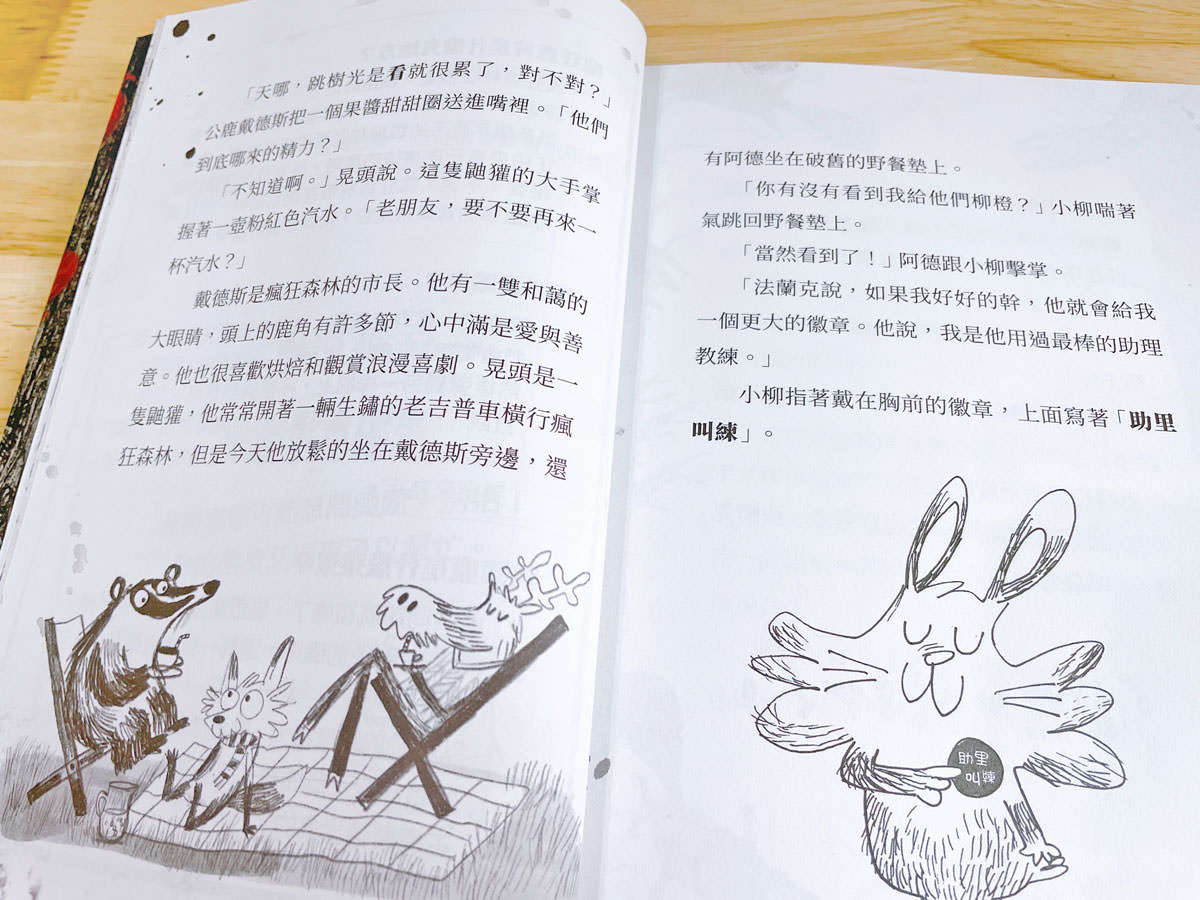 「天哪，跳樹光是看就很累了，對不對？」
公鹿戴德斯把一個果醬甜甜圈送進嘴裡。「他們
到底哪來的精力？」
「不知道啊。」晃頭說。這隻鼬獾的大手掌
握著一壺粉紅色汽水。「老朋友，要不要再來一
杯汽水？」
戴德斯是瘋狂森林的市長。他有一雙和藹的
大眼睛，頭上的鹿角有許多節，心中滿是愛與善
意。他也很喜歡烘焙和觀賞浪漫喜劇。晃頭是一
隻鼬獾，他常常開著一輛生鏽的老吉普車橫行瘋
狂森林，但是今天他放鬆的坐在戴德斯旁邊，還
有阿德坐在破舊的野餐墊上。
「你有沒有看到我給他們柳橙？」小柳喘著
氣跳回野餐墊上。
「當然看到了！」阿德跟小柳擊掌。
「法蘭克說，如果我好好的幹，他就會給我
一個更大的徽章。他說，我是他用過最棒的助理
教練。」
小柳指著戴在胸前的徽章，上面寫著「助里
叫練」。
助里
叫練